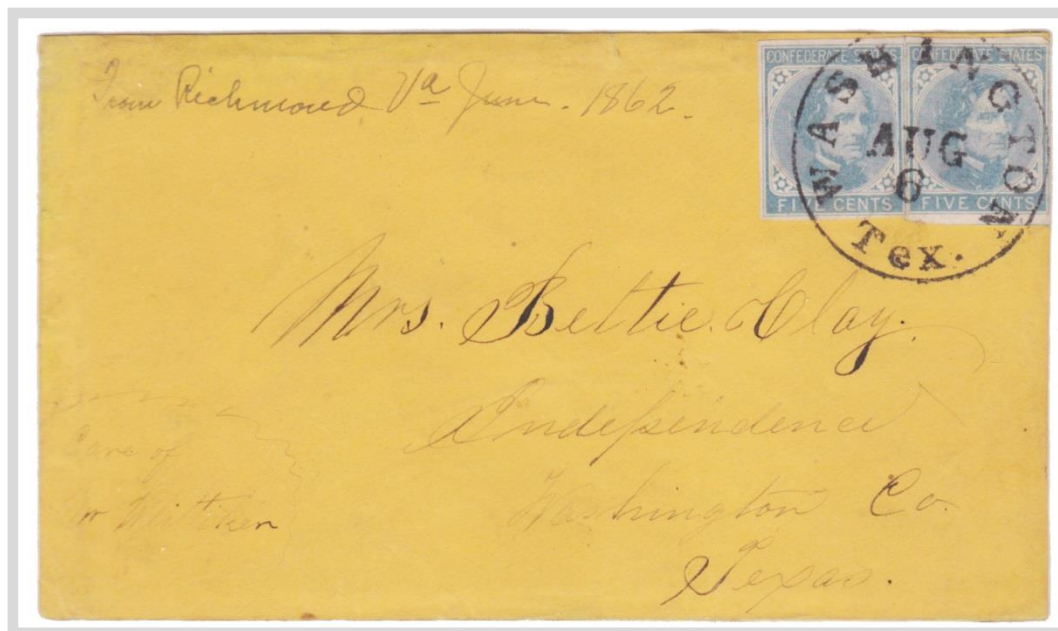 From Richmond Va June. 1862.
CONFEDERATE STATES
FIVE CENTS
CONFEDERATE STATES
FIVE CENTS
WASHINGTON
AUG
6
Tex.
Mrs. Bettie Clay.
Independence
Washington Co.
Texas.
Care of